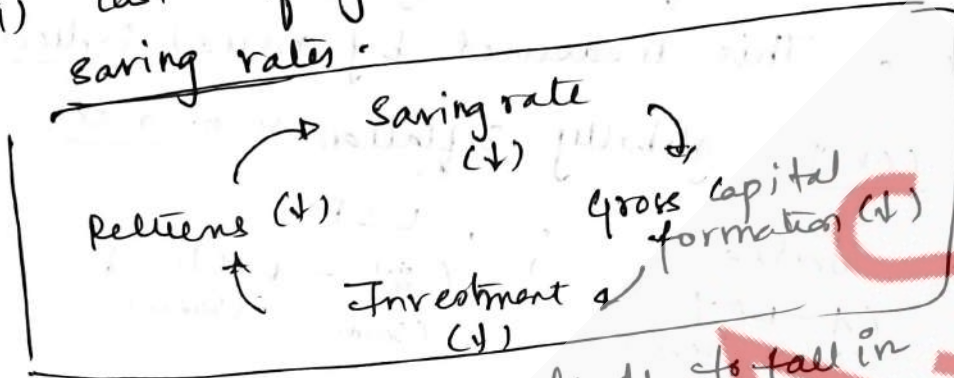 saving rates.
Saving rate
(↓)
Returns (↓)
Gross Capital
formation (↓)
Investment
(↓)
to fall in